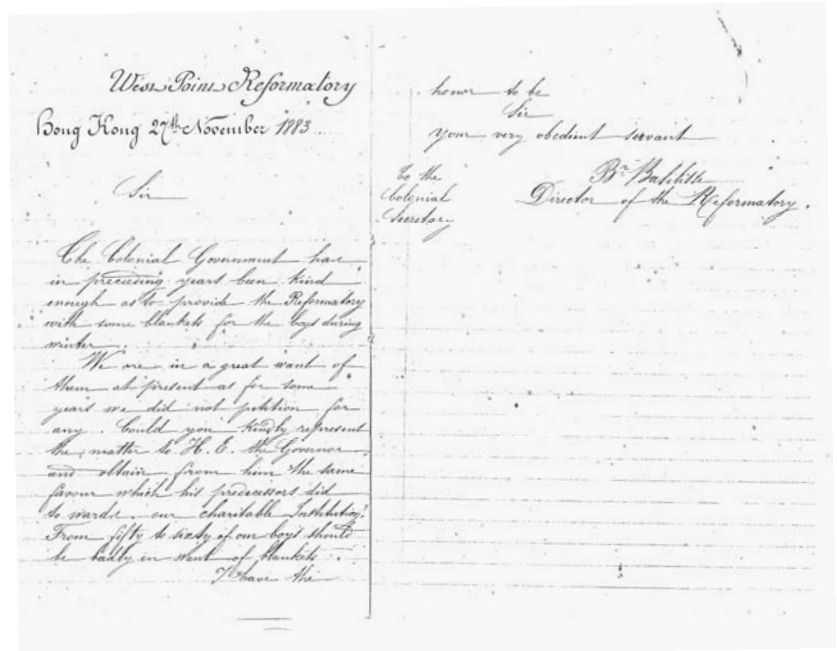 West Point Reformatory
Hong Kong 27th November 1883
Sir
The Colonial Government have
in preceeding years been kind
enough as to provide the Reformatory
with some blankets for the boys during
winter.
We are in a great want of
them at present as for some
years we did not petition for
any. Could you kindly represent
the matter to H. E. the Governor
and obtain from him the same
favour which his predecessors did
to wards our charitable Institution?
From fifty to sixty of our boys should
be badly in want of blankets.
I have the
honor to be
Sir
your very obedient servant
Br.
Director of the Reformatory.
To the
Colonial
Secretary